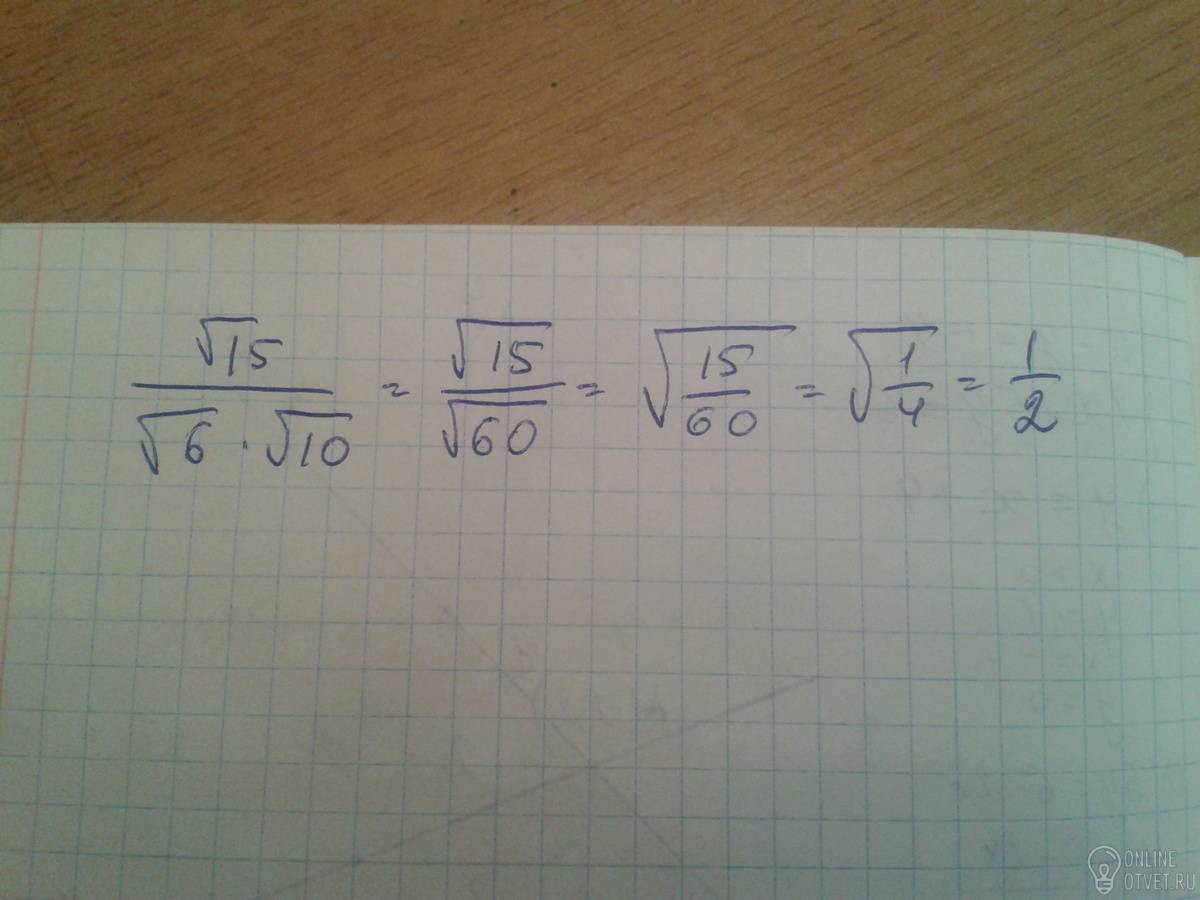 √15 / (√6 · √10) = √15 / √60 = √(15/60) = √(1/4) = 1/2
ONLINE
OTVET.RU